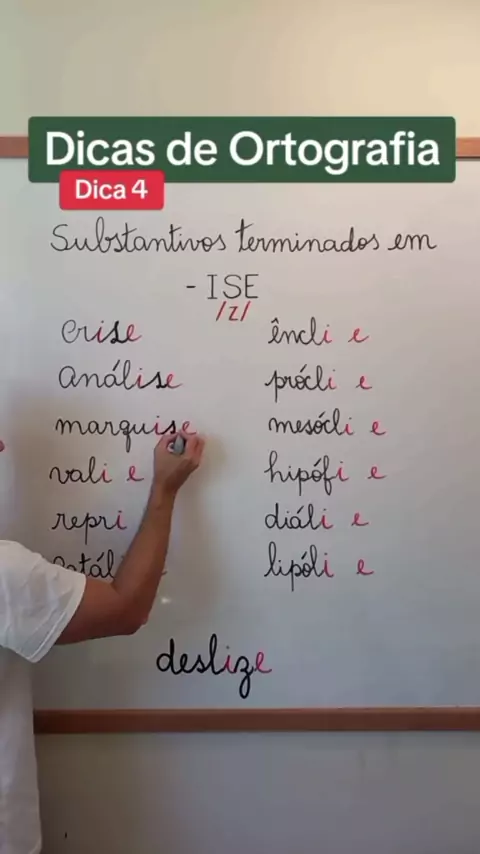 Dicas de Ortografia
Dica 4
Substantivos terminados em
- ISE
/z/
crise
análise
marquise
vali e
repri
catál
êncli e
prócli e
mesócli e
hipófi e
diáli e
lipóli e
deslize